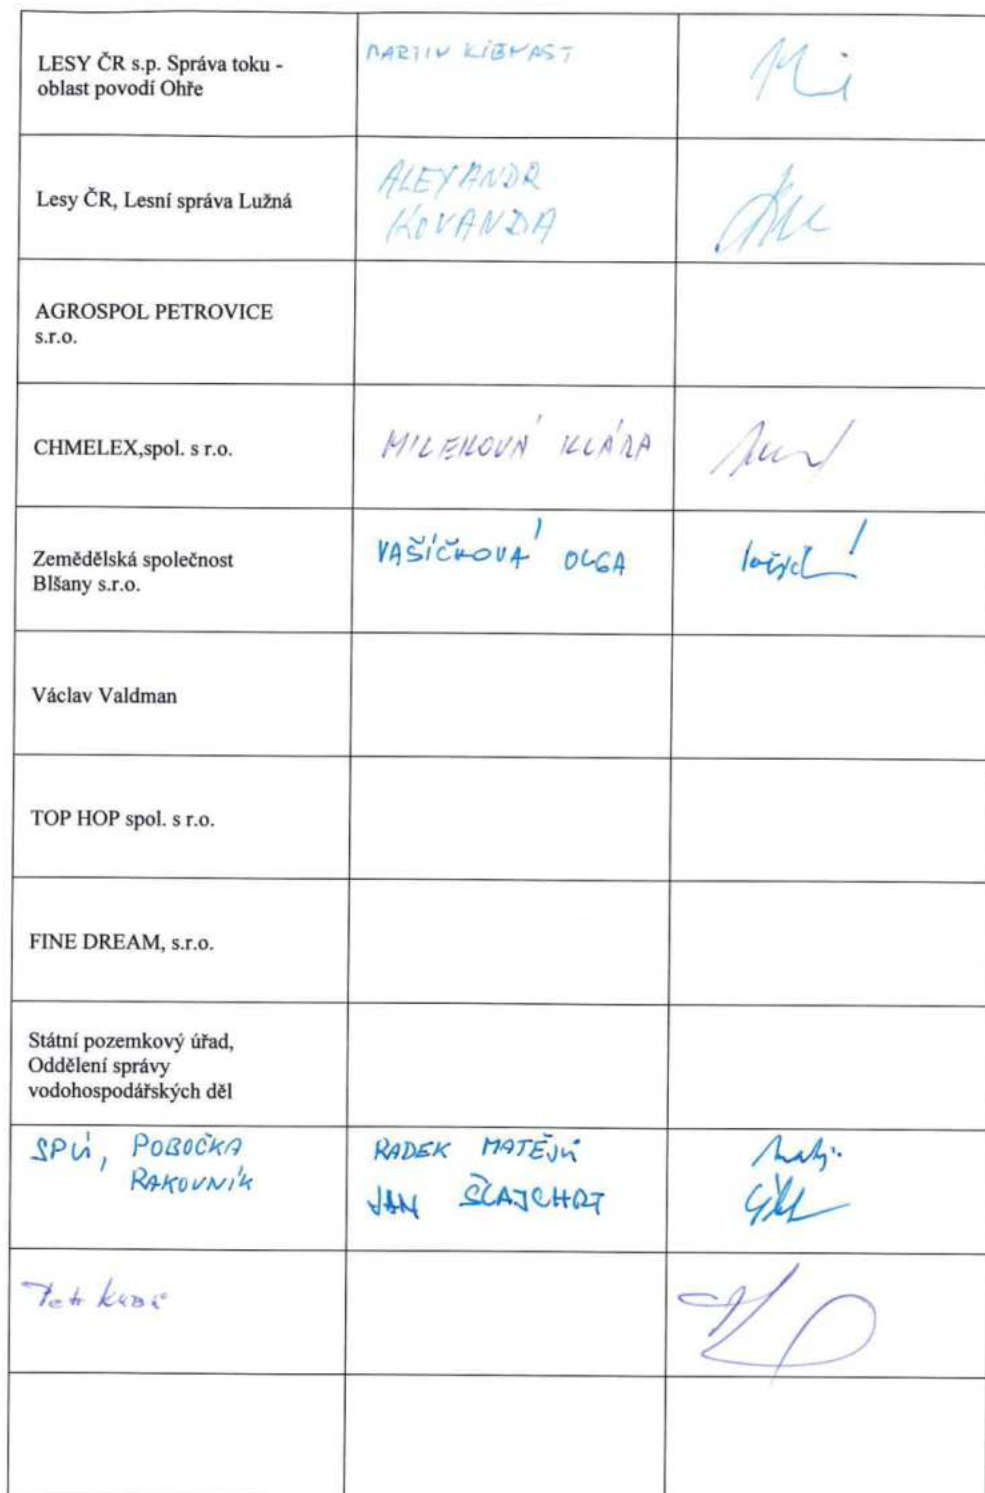 LESY ČR s.p. Správa toku -
oblast povodí Ohře
MARTIN KIENAST
Lesy ČR, Lesní správa Lužná
ALEXANDR
KOVANDA
AGROSPOL PETROVICE
s.r.o.
CHMELEX,spol. s r.o.
KLÁRA
Zemědělská společnost
Blšany s.r.o.
VAŠÍČKOVÁ OLGA
Václav Valdman
TOP HOP spol. s r.o.
FINE DREAM, s.r.o.
Státní pozemkový úřad,
Oddělení správy
vodohospodářských děl
SPÚ, POBOČKA
RAKOVNÍK
RADEK MATĚJŮ
JAN ŠLAJCHRT
Petr